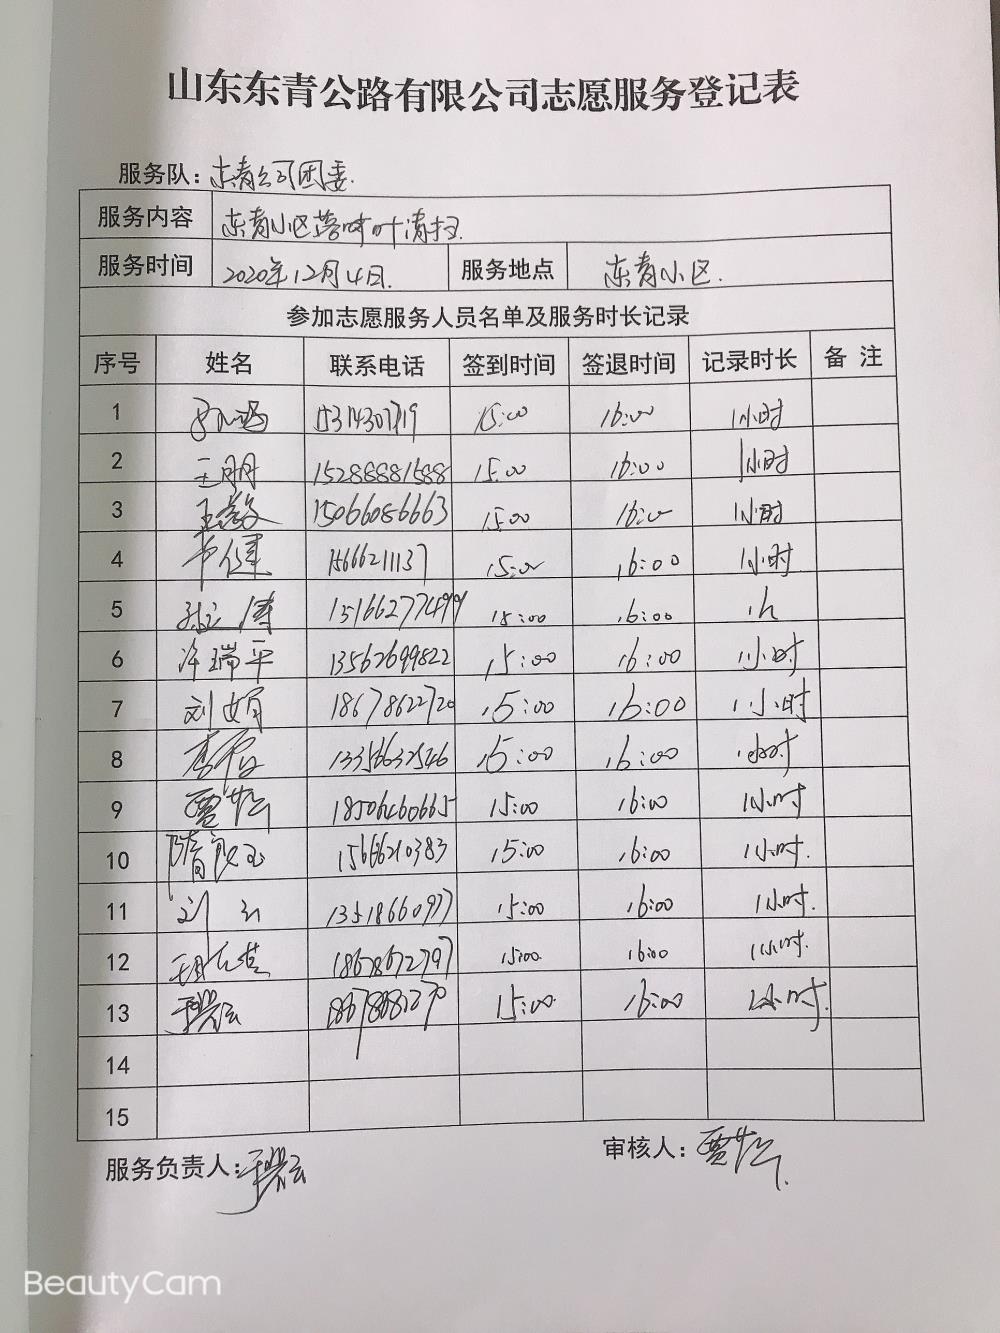 山东东青公路有限公司志愿服务登记表
服务队：东青公司团委
服务内容 东青小区落叶清扫
服务时间 2020年12月4日 服务地点 东青小区
参加志愿服务人员名单及服务时长记录
序号 姓名 联系电话 签到时间 签退时间 记录时长 备 注
1 15:00 16:00 1小时
2 王朋 15288881588 15:00 16:00 1小时
3 15066086663 15:00 16:00 1小时
4 15666211137 15:00 16:00 1小时
5 15:00 16:00 1h
6 许瑞平 13562699822 15:00 16:00 1小时
7 刘娟 18678622720 15:00 16:00 1小时
8 13356637546 15:00 16:00 1小时
9 18506460665 15:00 16:00 1小时
10 15666210383 15:00 16:00 1小时
11 刘 13518660977 15:00 16:00 1小时
12 18678672797 15:00 16:00 1小时
13 15:00 16:00 1小时
14
15
服务负责人： 审核人：
BeautyCam